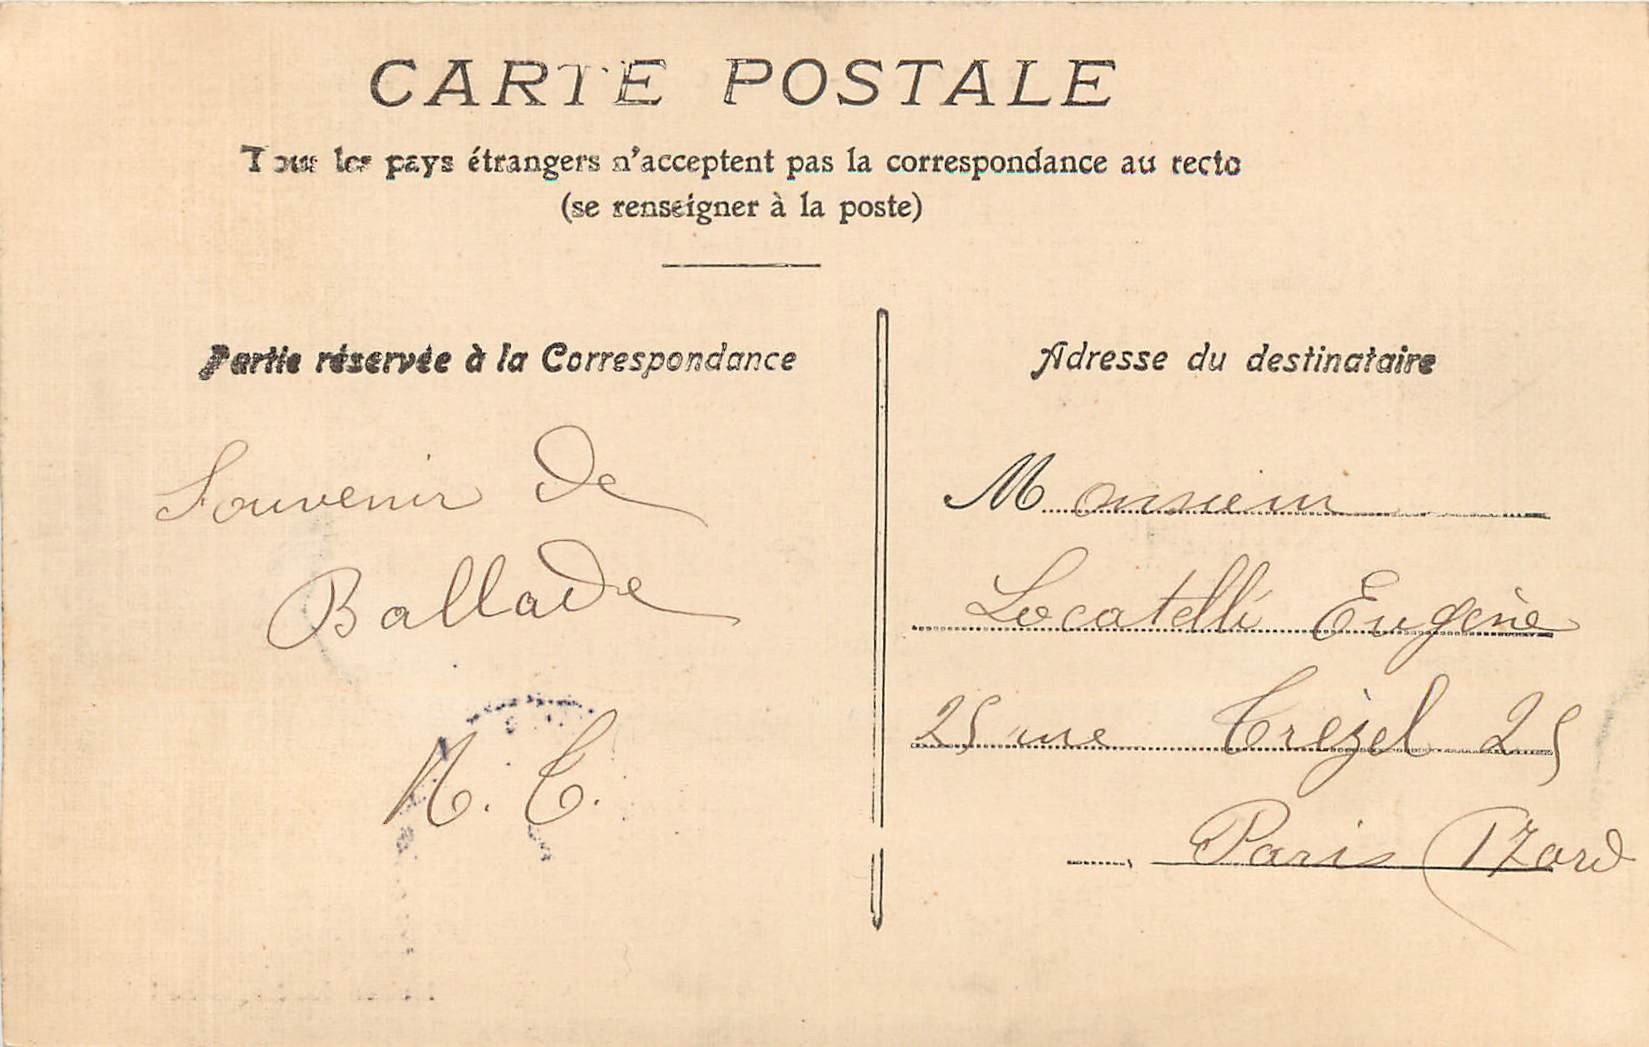 CARTE POSTALE
Tous les pays étrangers n'acceptent pas la correspondance au recto
(se renseigner à la poste)
Partie réservée à la Correspondance
Adresse du destinataire
Souvenir de
Ballade
N. C.
Monsieur
Locatelli Eugène
25 rue Trézel 25
Paris